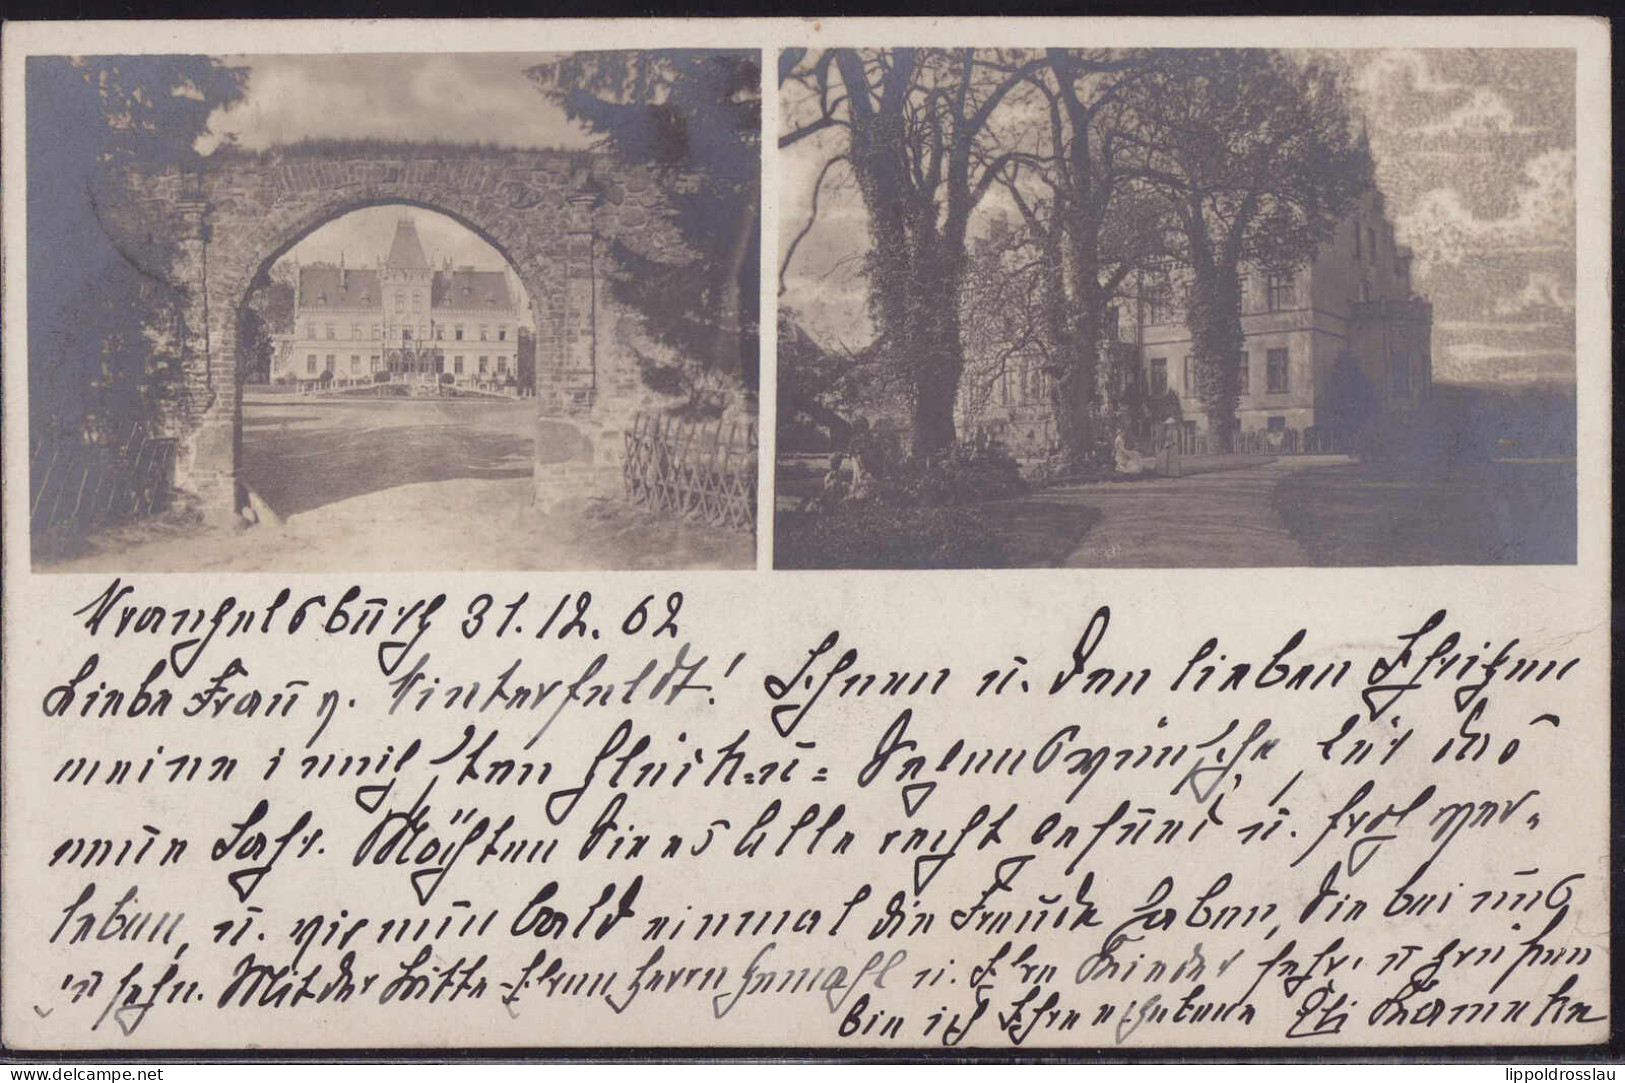 Wrangelsburg 31.12.02
Liebe Frau v. Winterfeldt! Ihnen u. den lieben Ihrigen
meine innigsten Glück- u. Segenswünsche für das
neue Jahr. Möchten Sie es Alle recht gesund u. froh ver-
leben, u. wir nun bald einmal die Freude haben, Sie bei uns
zu sehn. Mit der Bitte Ihren Herrn Gemahl u. Ihre Kinder sehr zu grüßen
bin ich Ihre ergebene
lippoldrosslau